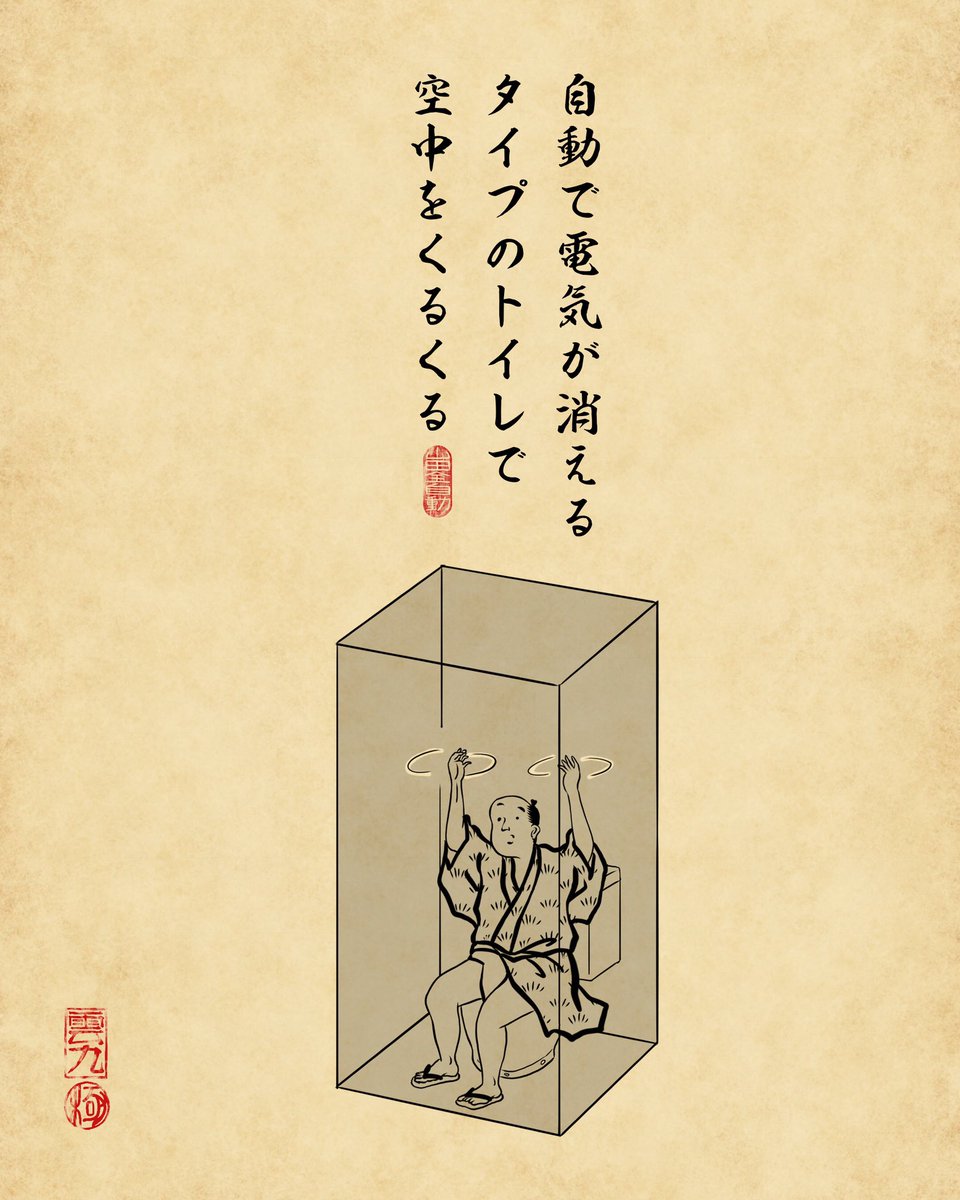 自動で電気が消える
タイプのトイレで
空中をくるくる